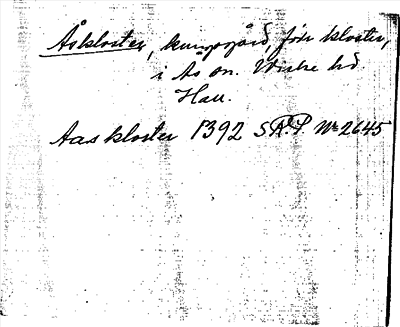 Åskloster, kungsgård, förr kloster,
i Ås sn. Viske hd.
Hall.
Aas kloster 1392 SRP No 2645